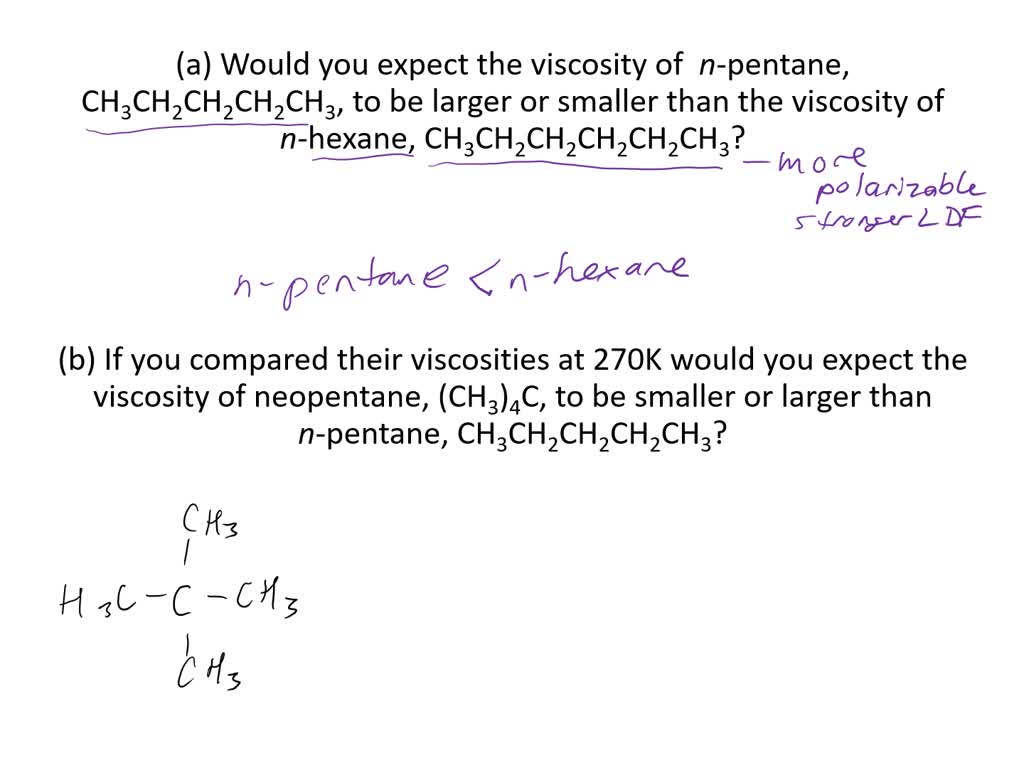 (a) Would you expect the viscosity of n-pentane,
CH₃CH₂CH₂CH₂CH₃, to be larger or smaller than the viscosity of
n-hexane, CH₃CH₂CH₂CH₂CH₂CH₃?
— more
polarizable
stronger LDF
n-pentane < n-hexane
(b) If you compared their viscosities at 270K would you expect the
viscosity of neopentane, (CH₃)₄C, to be smaller or larger than
n-pentane, CH₃CH₂CH₂CH₂CH₃?
CH₃
|
H₃C – C – CH₃
|
CH₃